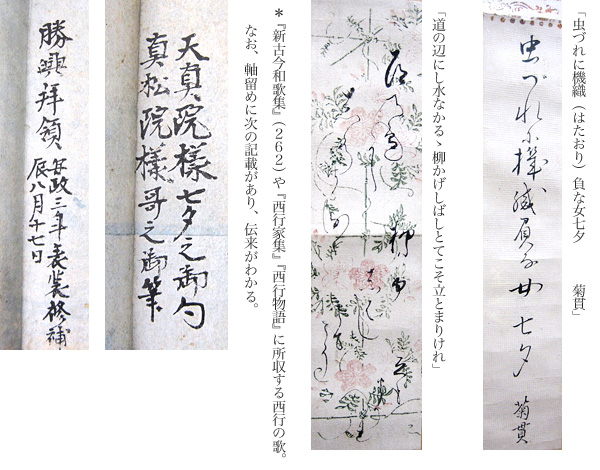 「虫づれに機織（はたおり）負な女七夕　菊貫」
虫づれ尓機織負な女七夕　菊貫
「道の辺にし水なかるゝ柳かげしばしとてこそ立とまりけれ」
＊『新古今和歌集』（２６２）や『西行家集』『西行物語』に所収する西行の歌。
なお、軸留めに次の記載があり、伝来がわかる。
天真院樣七夕之御句
真松院樣哥之御筆
安政三年表装修補
辰八月十七日
勝興拝領